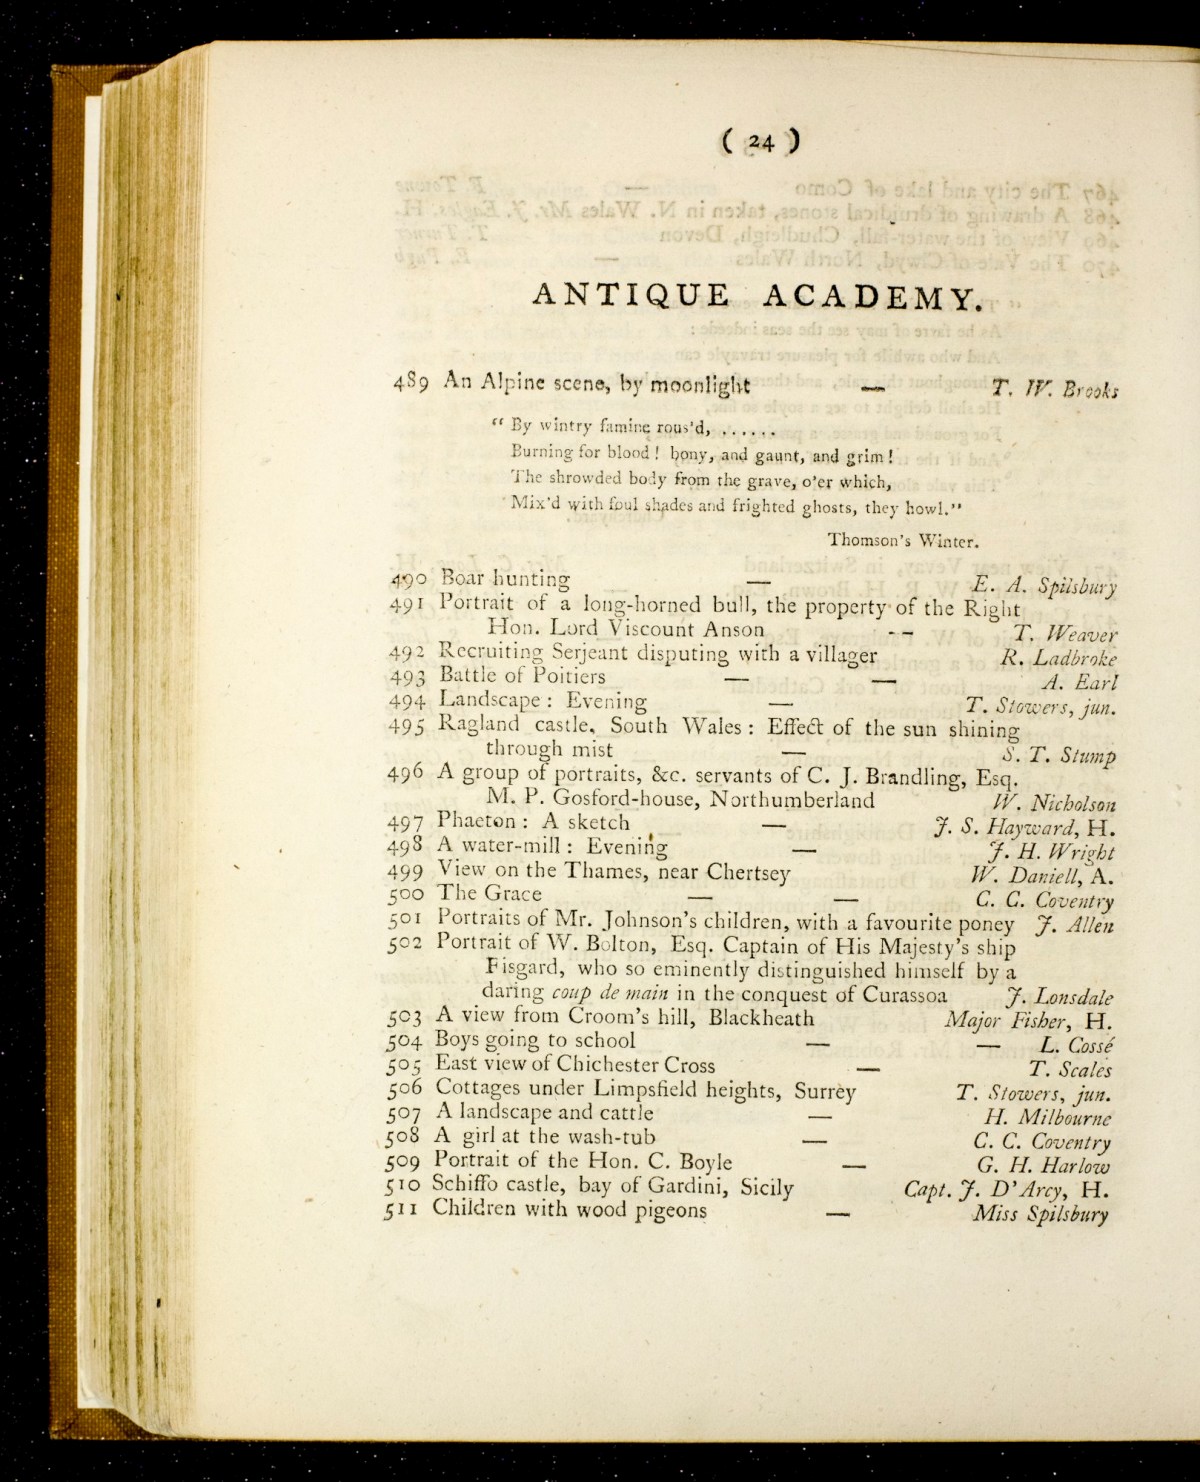 ( 24 )
ANTIQUE ACADEMY.
489 An Alpine scene, by moonlight — T. W. Brooks
“ By wintry famine rous'd, ......
Burning for blood ! bony, and gaunt, and grim !
The shrowded body from the grave, o'er which,
Mix'd with foul shades and frighted ghosts, they howl.”
Thomson's Winter.
490 Boar hunting — E. A. Spilsbury
491 Portrait of a long-horned bull, the property of the Right
Hon. Lord Viscount Anson -- T. Weaver
492 Recruiting Serjeant disputing with a villager R. Ladbroke
493 Battle of Poitiers — — A. Earl
494 Landscape : Evening — T. Stowers, jun.
495 Ragland castle, South Wales : Effect of the sun shining
through mist — S. T. Stump
496 A group of portraits, &c. servants of C. J. Brandling, Esq.
M. P. Gosford-house, Northumberland W. Nicholson
497 Phaeton : A sketch — J. S. Hayward, H.
498 A water-mill : Evening — J. H. Wright
499 View on the Thames, near Chertsey W. Daniell, A.
500 The Grace — — C. C. Coventry
501 Portraits of Mr. Johnson's children, with a favourite poney J. Allen
502 Portrait of W. Bolton, Esq. Captain of His Majesty's ship
Fisgard, who so eminently distinguished himself by a
daring coup de main in the conquest of Curassoa J. Lonsdale
503 A view from Croom's hill, Blackheath Major Fisher, H.
504 Boys going to school — — L. Cossé
505 East view of Chichester Cross — T. Scales
506 Cottages under Limpsfield heights, Surrey T. Stowers, jun.
507 A landscape and cattle — H. Milbourne
508 A girl at the wash-tub — C. C. Coventry
509 Portrait of the Hon. C. Boyle — G. H. Harlow
510 Schiffo castle, bay of Gardini, Sicily Capt. J. D'Arcy, H.
511 Children with wood pigeons — Miss Spilsbury